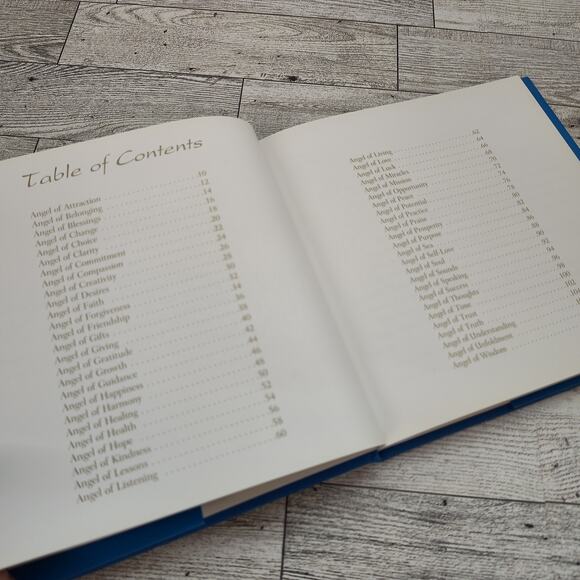 Table of Contents
Angel of Attraction 10
Angel of Belonging 12
Angel of Blessings 14
Angel of Change 16
Angel of Choice 18
Angel of Clarity 20
Angel of Commitment 22
Angel of Compassion 24
Angel of Creativity 26
Angel of Desires 28
Angel of Faith 30
Angel of Forgiveness 32
Angel of Friendship 34
Angel of Gifts 36
Angel of Giving 38
Angel of Gratitude 40
Angel of Growth 42
Angel of Guidance 44
Angel of Happiness 46
Angel of Harmony 48
Angel of Healing 50
Angel of Health 52
Angel of Hope 54
Angel of Kindness 56
Angel of Lessons 58
Angel of Listening 60
Angel of Living 62
Angel of Love 64
Angel of Luck 66
Angel of Miracles 68
Angel of Mission 70
Angel of Opportunity 72
Angel of Peace 74
Angel of Potential 76
Angel of Practice 78
Angel of Praise 80
Angel of Prosperity 82
Angel of Purpose 84
Angel of Sea 86
Angel of Self-Love 88
Angel of Soul 90
Angel of Sounds 92
Angel of Speaking 94
Angel of Success 96
Angel of Thoughts 98
Angel of Time 100
Angel of Trust 102
Angel of Truth 104
Angel of Understanding
Angel of Unfoldment
Angel of Wisdom